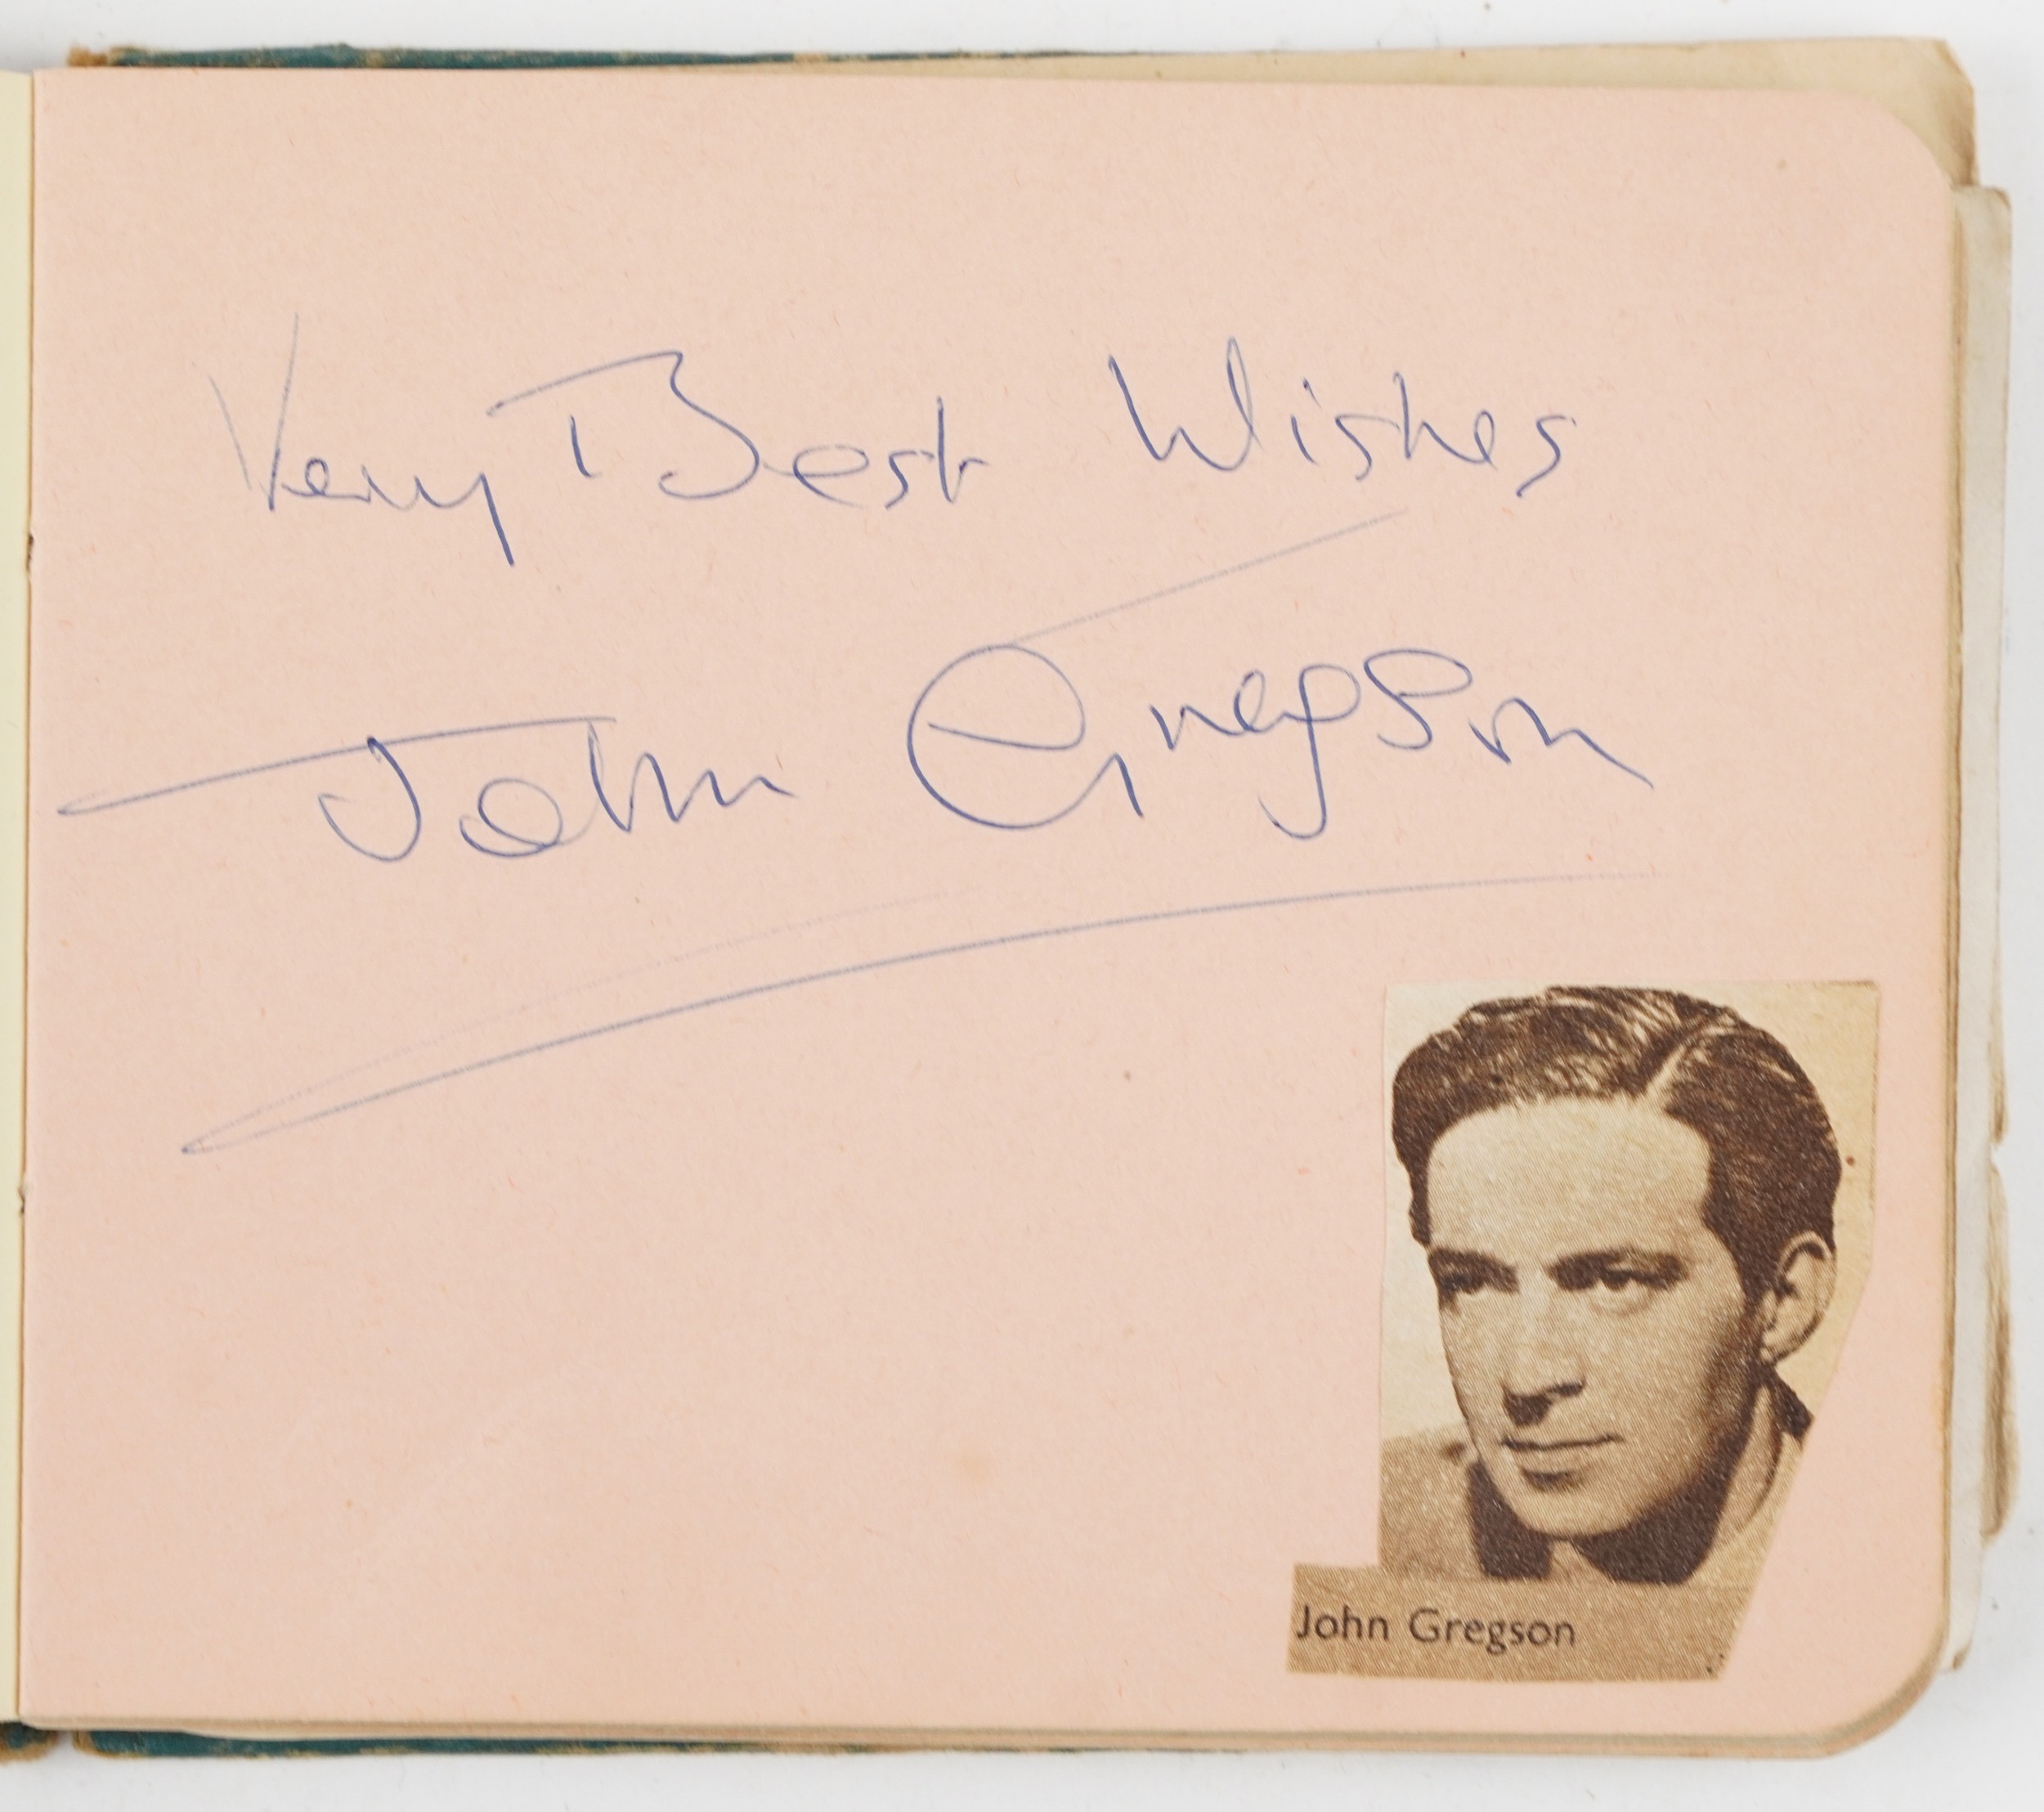 Very Best Wishes
John Gregson
John Gregson